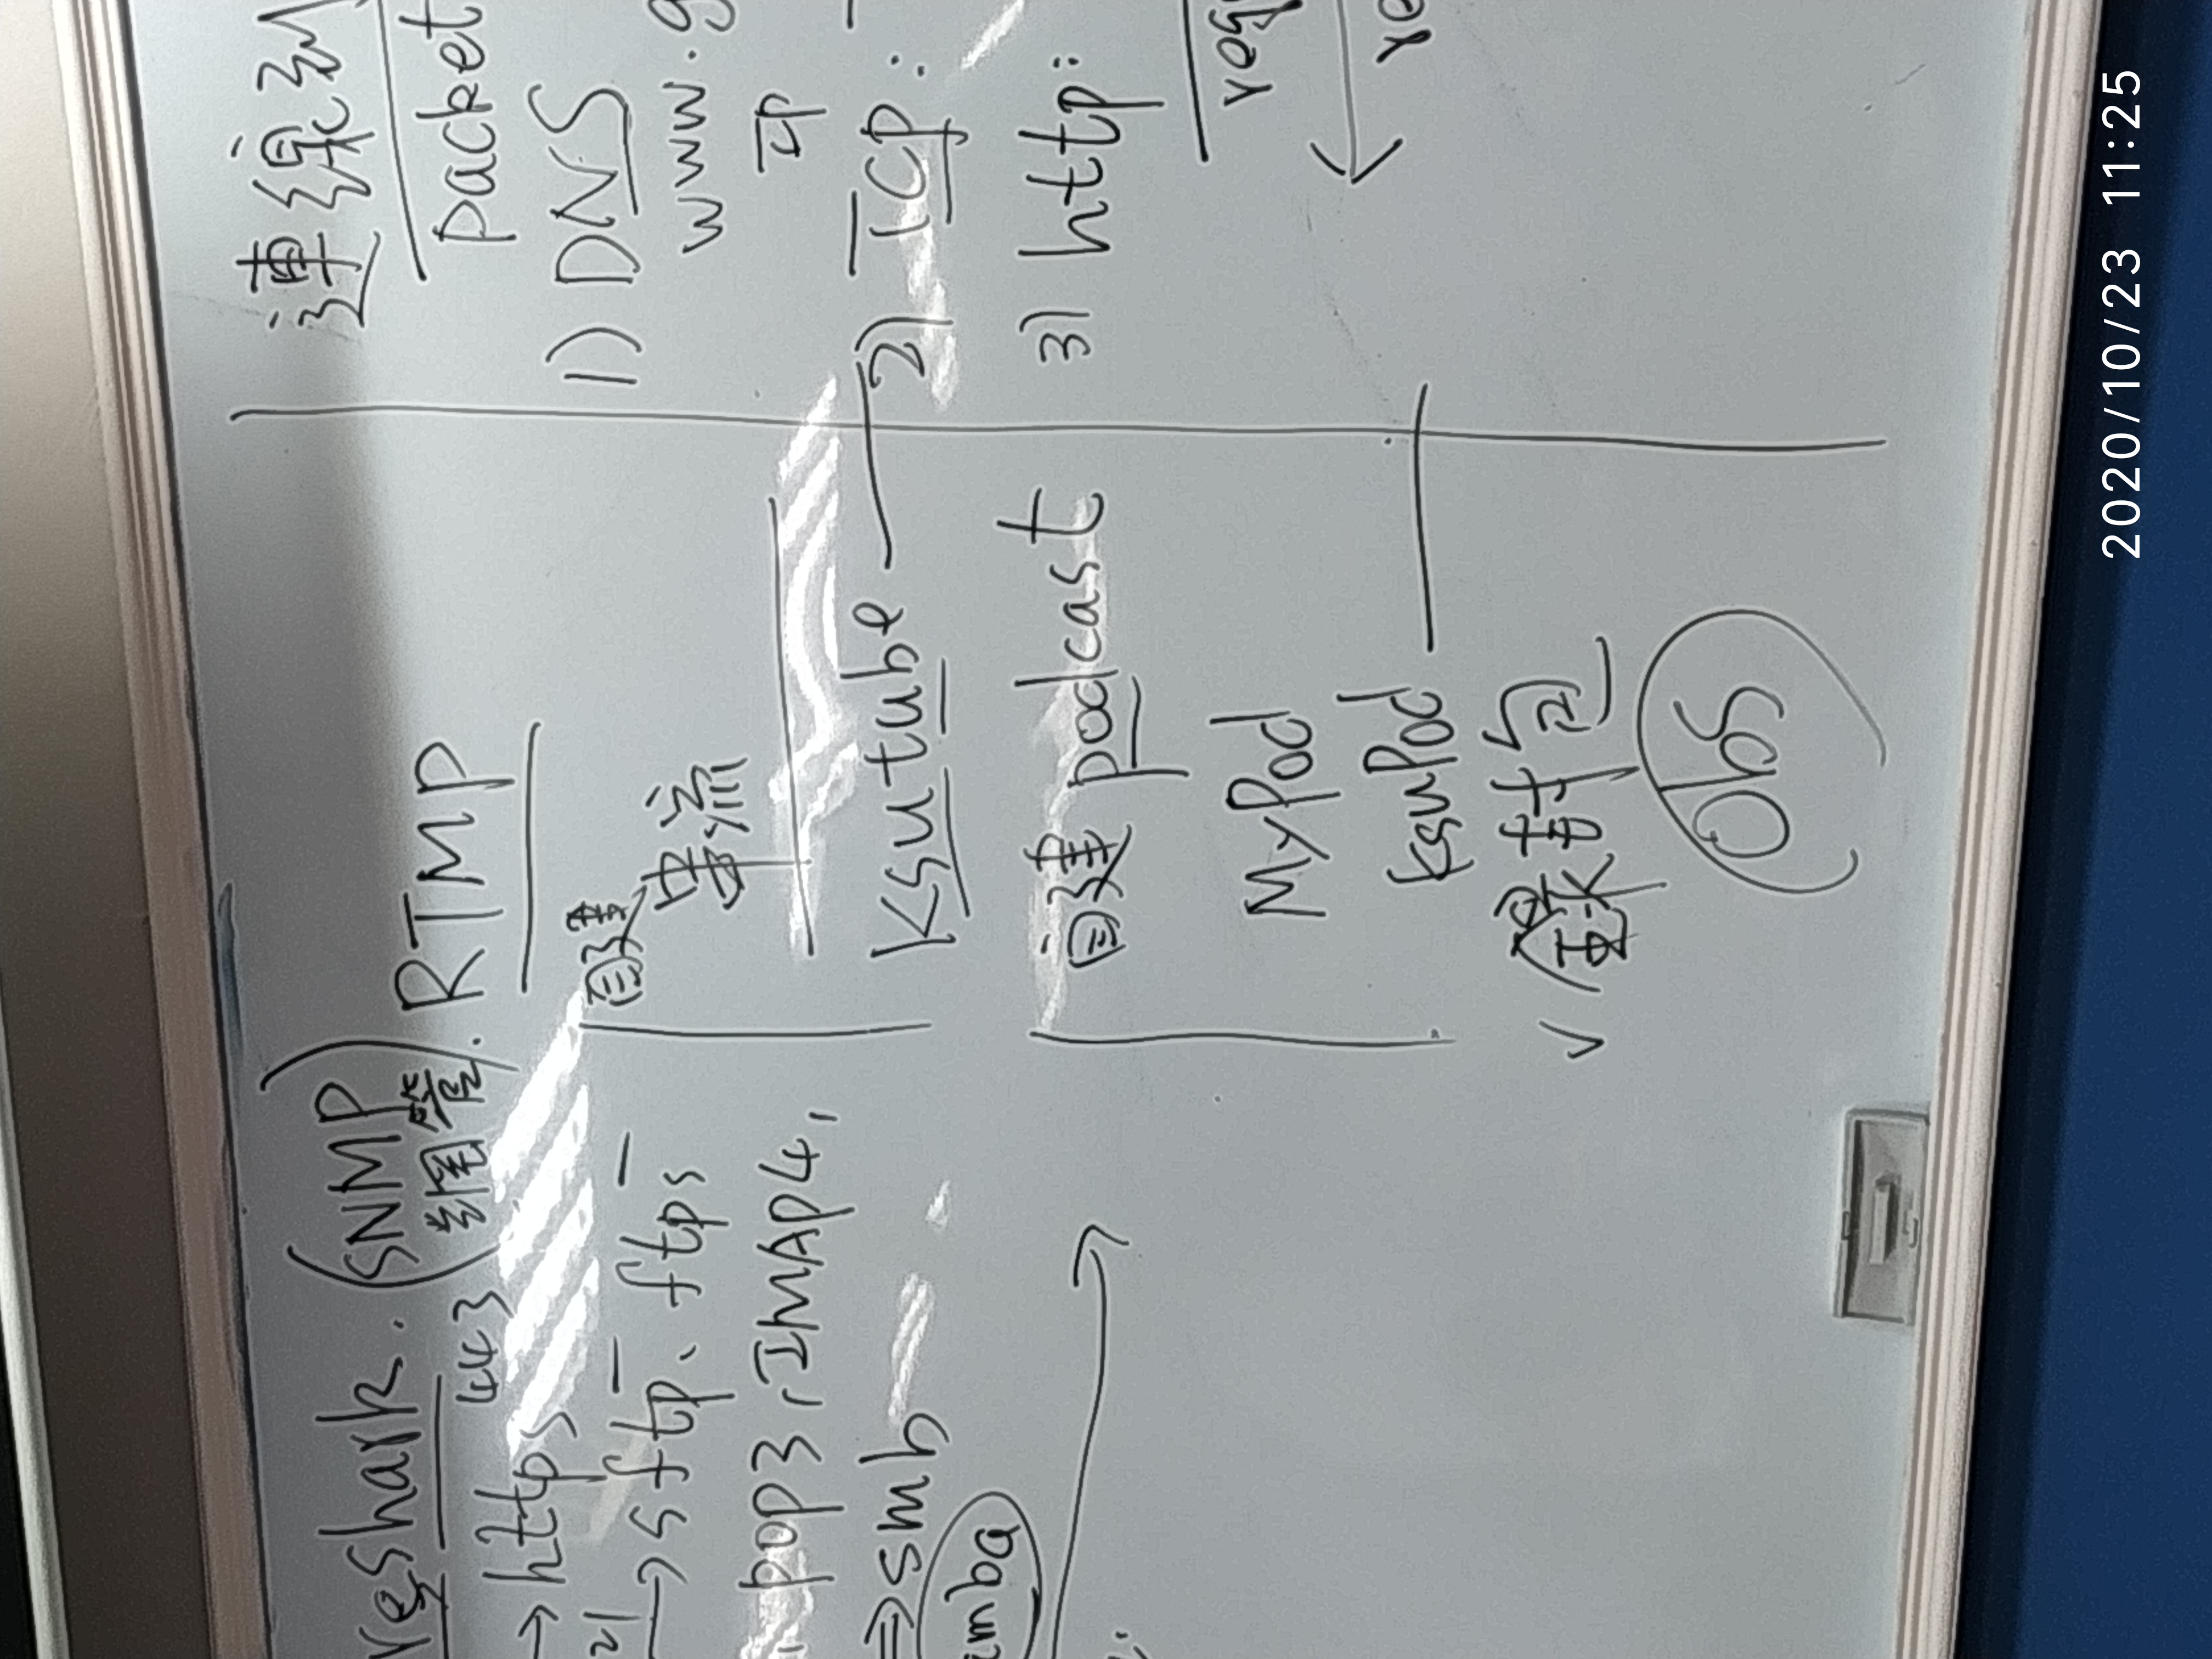 reshark. (SNMP
網管). RTMP
443
→https
21
→sftp、ftps
pop3, IMAP4,
⇒smb
amba
自建
串流
Ksutube
自建 podcast
MyPod
KsuPod
✓ 錄封包
Obs
連線到
packet
1) DNS
www.g
IP
2) TCP:
3) http:
requ
re
2020/10/23 11:25